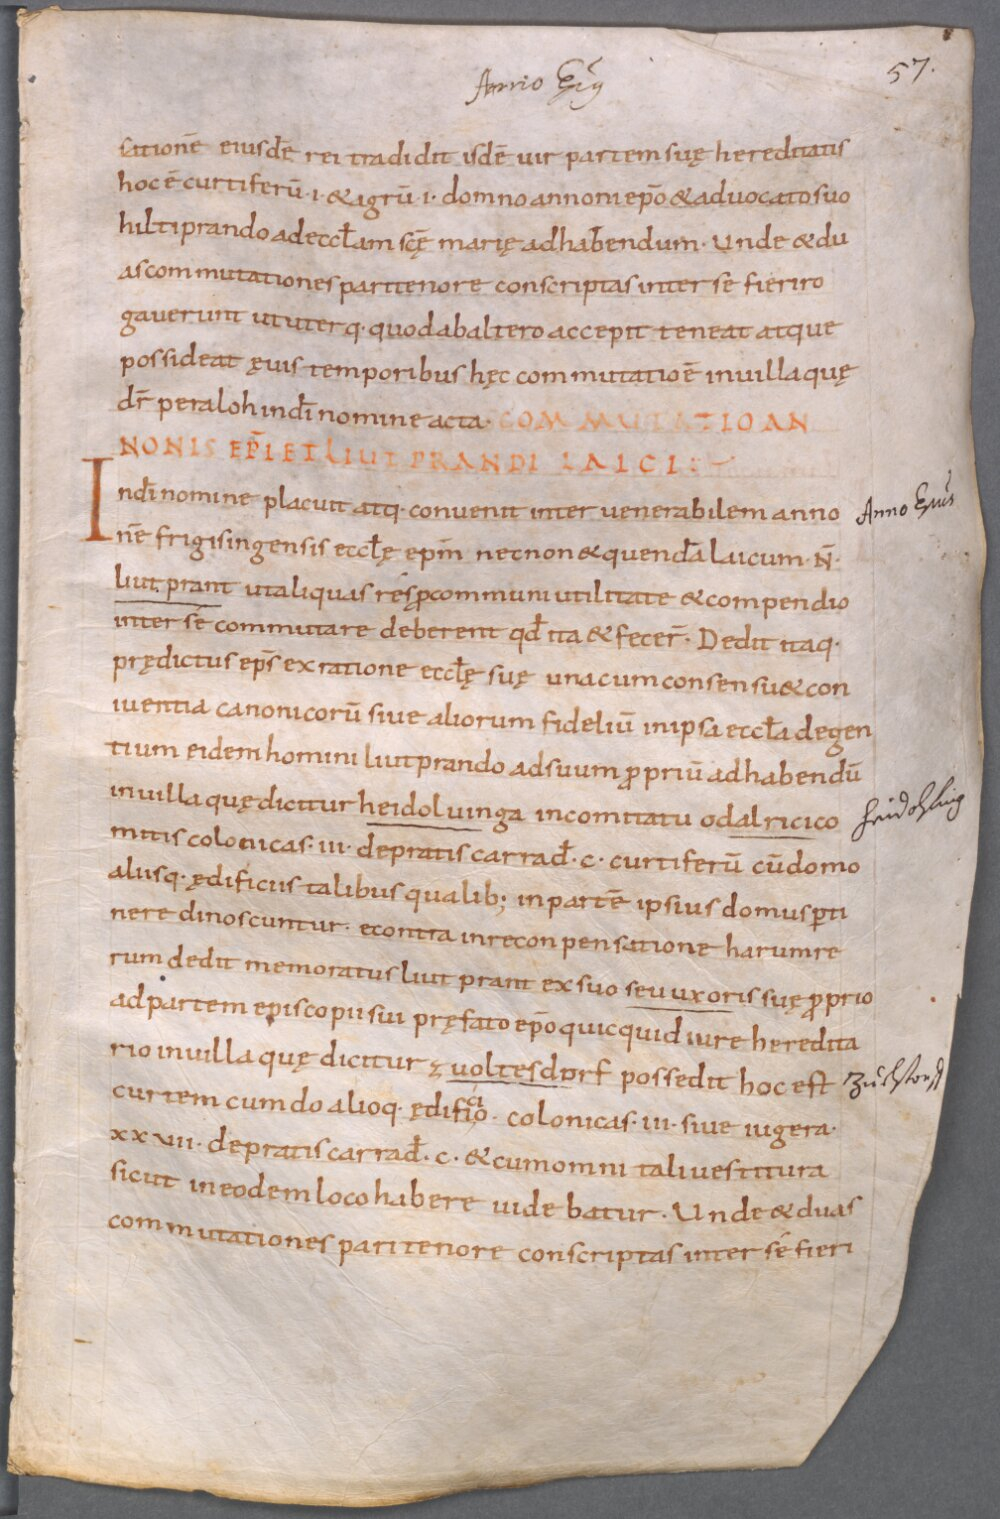 Anno Ep̄y
57.
sitionē eiusdē rei tradidit isdē uir partem suę hereditatis
hoc ē curtiferū ·i· & agrū ·i· domno annoni ep̄o & aduocato suo
hiltiprando ad eccl̄am sc̄ę marię ad habendum · Unde & du
as commutationes pari tenore conscriptas inter se fieri ro
gauerunt ut uterq· quod ab altero accepit teneat atque
possideat ęuis temporibus hęc commutatio ē in uilla quę
dr̄ peraloh in dī nomine acta · COMMUTATIO AN
NONIS EP̄I ET LIUTPRANDI LAICI
In dī nomine placuit atq· conuenit inter uenerabilem anno
Anno Ep̄us
nē frigisingensis eccl̄ę ep̄m necnon & quendā laicum · N̄ ·
liutprant ut aliquas res ꝓ communi utilitate & compendio
inter se commutare deberent qd̄ ita & fecer̄ · Dedit itaq·
prędictus ep̄s ex ratione eccl̄ę suę una cum consensu & con
iuentia canonicorū siue aliorum fideliū in ipsa eccl̄a degen
tium eidem homini liutprando ad suum ꝓpriū ad habendū
in uilla quę dicitur heidoluinga in comitatu odalrici co
heidolfing
mitis colonicas · iii · de pratis carrad̄ · c · curtiferū cū domo
aliisq· ędificiis talibus qualib; in partē ipsius domus ꝑti
nere dinoscuntur · econtra in reconpensatione harum re
rum dedit memoratus liutprant ex suo seu uxoris suę ꝓprio
ad partem episcopii sui pręfato ep̄o quicquid iure heredita
rio in uilla quę dicitur z uoltesdorf possedit hoc est
curtem cum do alioq· ędificio · colonicas · iii · siue iugera ·
xxviii · de pratis carrad̄ · c · & cum omni tali uestitura
sicut in eodem loco habere uidebatur · Unde & duas
commutationes pari tenore conscriptas inter se fieri